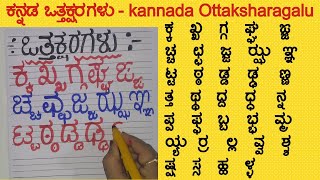 ಕನ್ನಡ ಒತ್ತಕ್ಷರಗಳು - kannada Ottaksharagalu
ಒತ್ತಕ್ಷರಗಳು
ಕ್ಕ ಖ್ಖ ಗ್ಗ ಘ್ಘ ಙ್ಙ
ಚ್ಚ ಛ್ಛ ಜ್ಜ ಝ್ಝ ಞ್ಞ
ಟ್ಟ ಠ್ಠ ಡ್ಡ ಢ್ಢ
ಕ್ಕ ಖ್ಖ ಗ್ಗ ಘ್ಘ ಙ್ಙ
ಚ್ಚ ಛ್ಛ ಜ್ಜ ಝ್ಝ ಞ್ಞ
ಟ್ಟ ಠ್ಠ ಡ್ಡ ಢ್ಢ ಣ್ಣ
ತ್ತ ಥ್ಥ ದ್ದ ಧ್ಧ ನ್ನ
ಪ್ಪ ಫ್ಫ ಬ್ಬ ಭ್ಭ ಮ್ಮ
ಯ್ಯ ರ್ರ ಲ್ಲ ವ್ವ ಶ್ಶ
ಷ್ಷ ಸ್ಸ ಹ್ಹ ಳ್ಳ